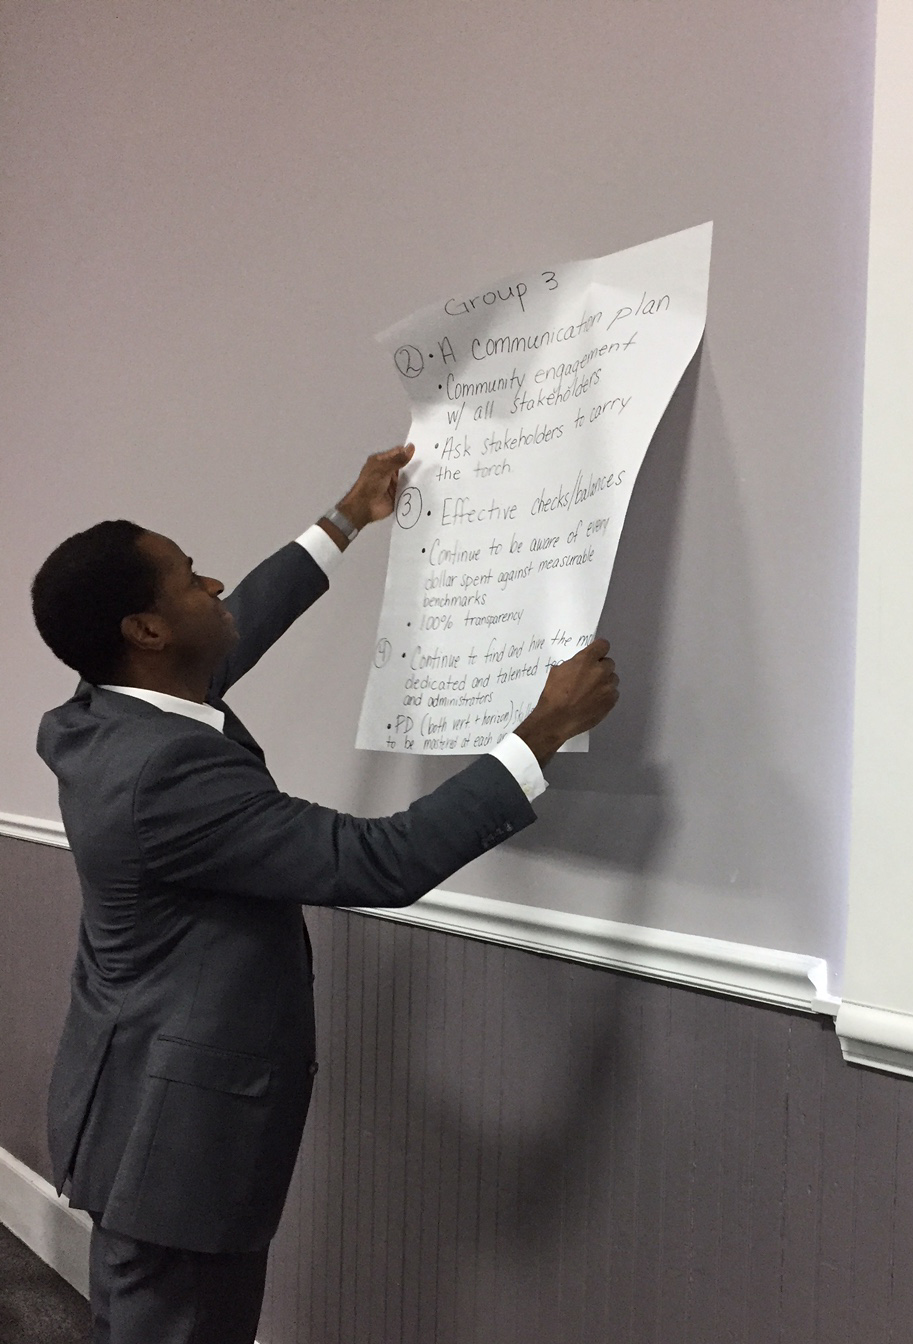 Group 3
② • A communication plan
• Community engagement
w/ all stakeholders
• Ask stakeholders to carry
the torch
③ • Effective checks/balances
• Continue to be aware of every
dollar spent against measurable
benchmarks
• 100% transparency
④ • Continue to find and hire the
dedicated and talented
and administrators
• PD (both vert + horizon)
to be mastered at each